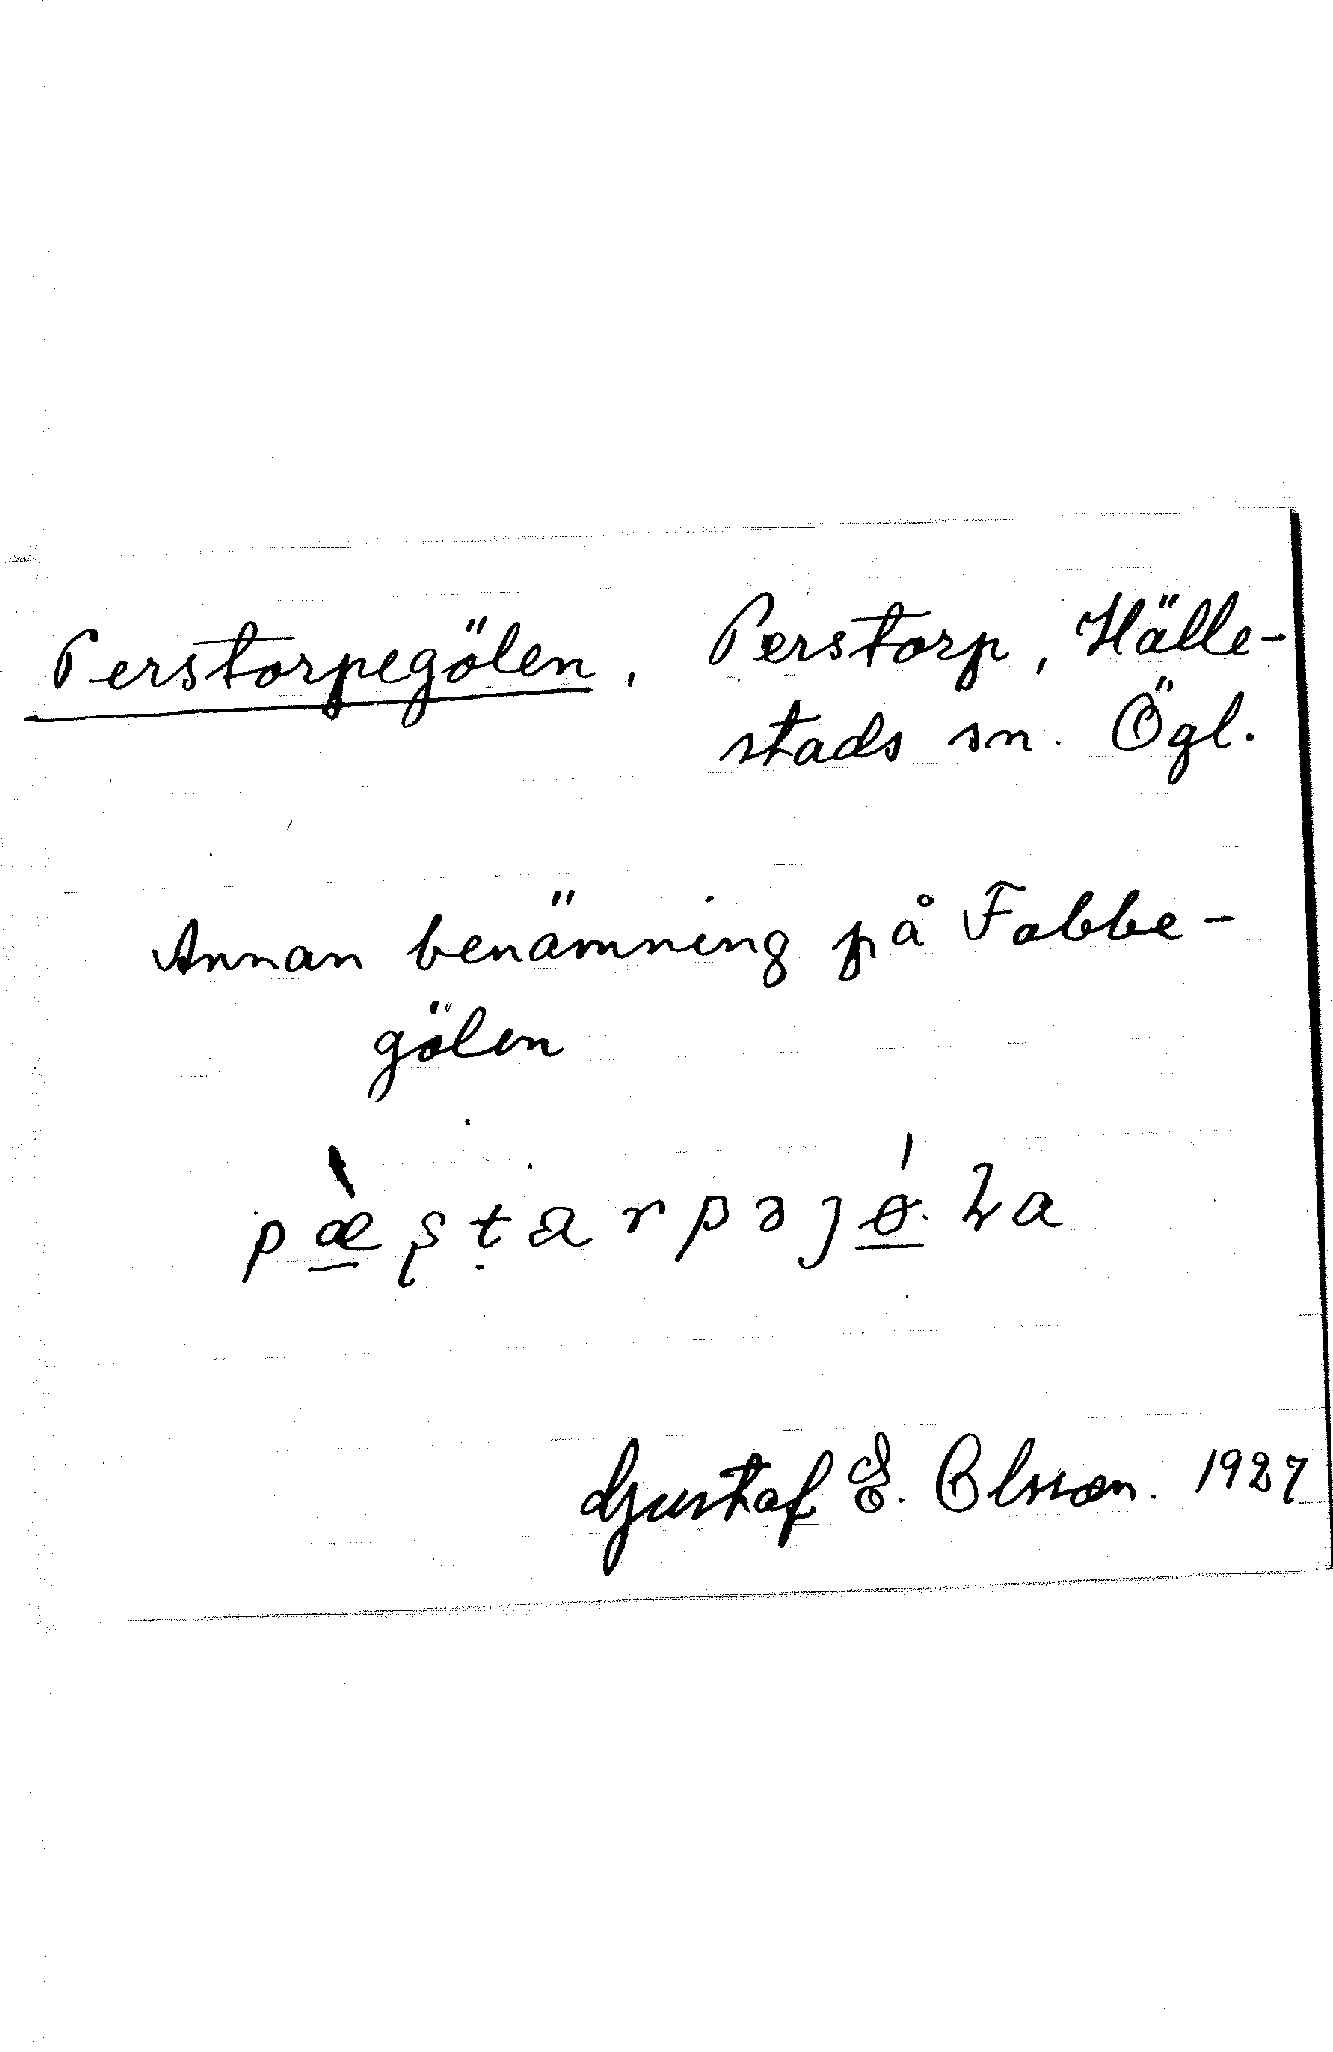 Perstorpegölen, Perstorp, Hälle-
stads sn. Ögl.
Annan benämning på Fabbe-
gölen
Gustaf E. Olsson. 1927